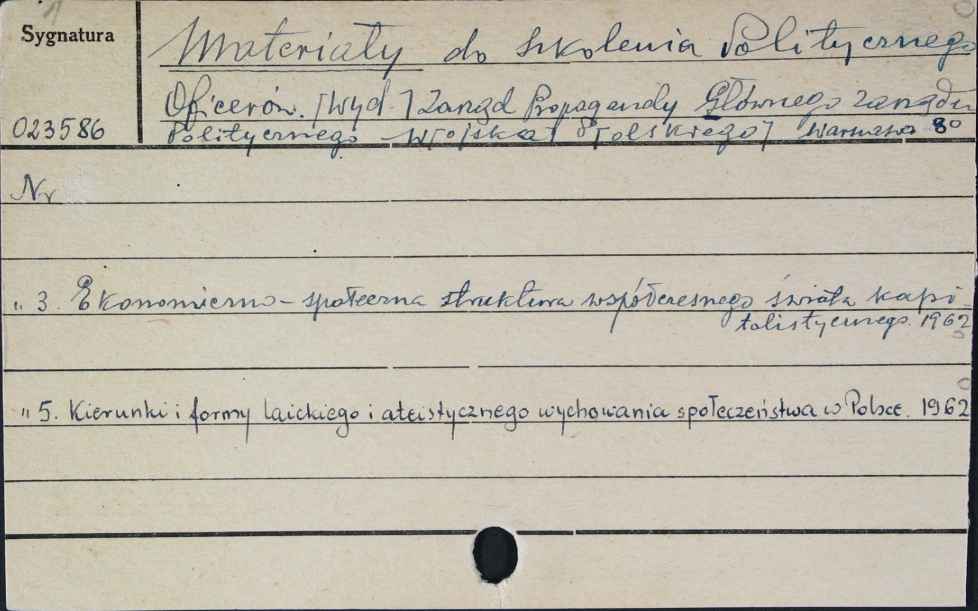 Sygnatura
Materiały do szkolenia Politycznego
Oficerów. [Wyd.] Zarząd Propagandy Głównego Zarządu
023586
Politycznego W[ojska] P[olskiego] Warszawa 8°
Nr
" 3. Ekonomiczno-społeczna struktura współczesnego świata kapi
talistycznego. 1962
" 5. Kierunki i formy laickiego i ateistycznego wychowania społeczeństwa w Polsce. 1962